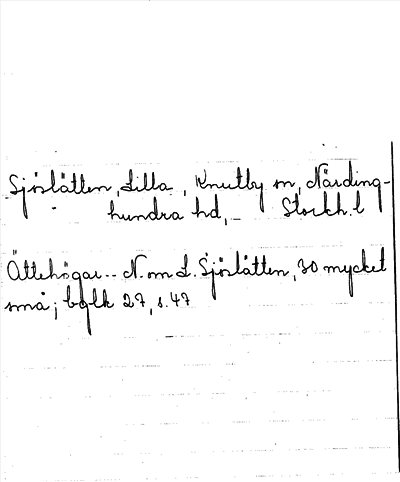 Sjöslätten, Lilla, Knutby sn, Närding-
hundra hd, Stockh. l
Ättehögar... N. om L. Sjöslätten, 30 mycket
små; bglk 27, s. 47